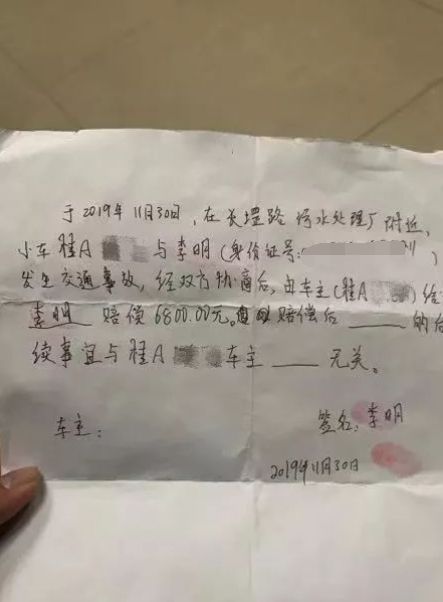 于2019年11月30日，在长堽路 污水处理厂附近，
小车桂A 与李明（身份证号:
发生交通事故，经双方协商后，由车主（桂A ）给
李明 赔偿 6800.00元。 赔偿后 ____ 的后
续事宜与桂A 车主 ____ 无关。
车主： 签名：李明
2019年11月30日